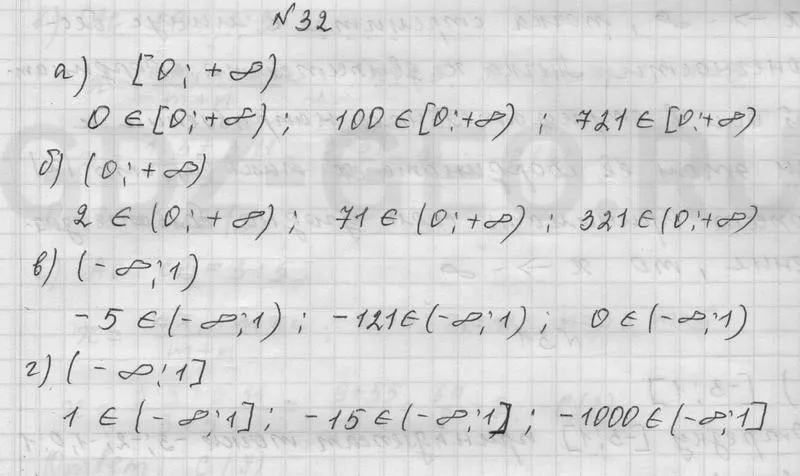 №32
а) [0; +∞)
0 ∈ [0; +∞) ; 100 ∈ [0; +∞) ; 721 ∈ [0; +∞)
б) (0; +∞)
2 ∈ (0; +∞) ; 71 ∈ (0; +∞) ; 321 ∈ (0; +∞)
в) (-∞; 1)
-5 ∈ (-∞; 1) ; -121 ∈ (-∞; 1) ; 0 ∈ (-∞; 1)
г) (-∞; 1]
1 ∈ (-∞; 1] ; -15 ∈ (-∞; 1] ; -1000 ∈ (-∞; 1]